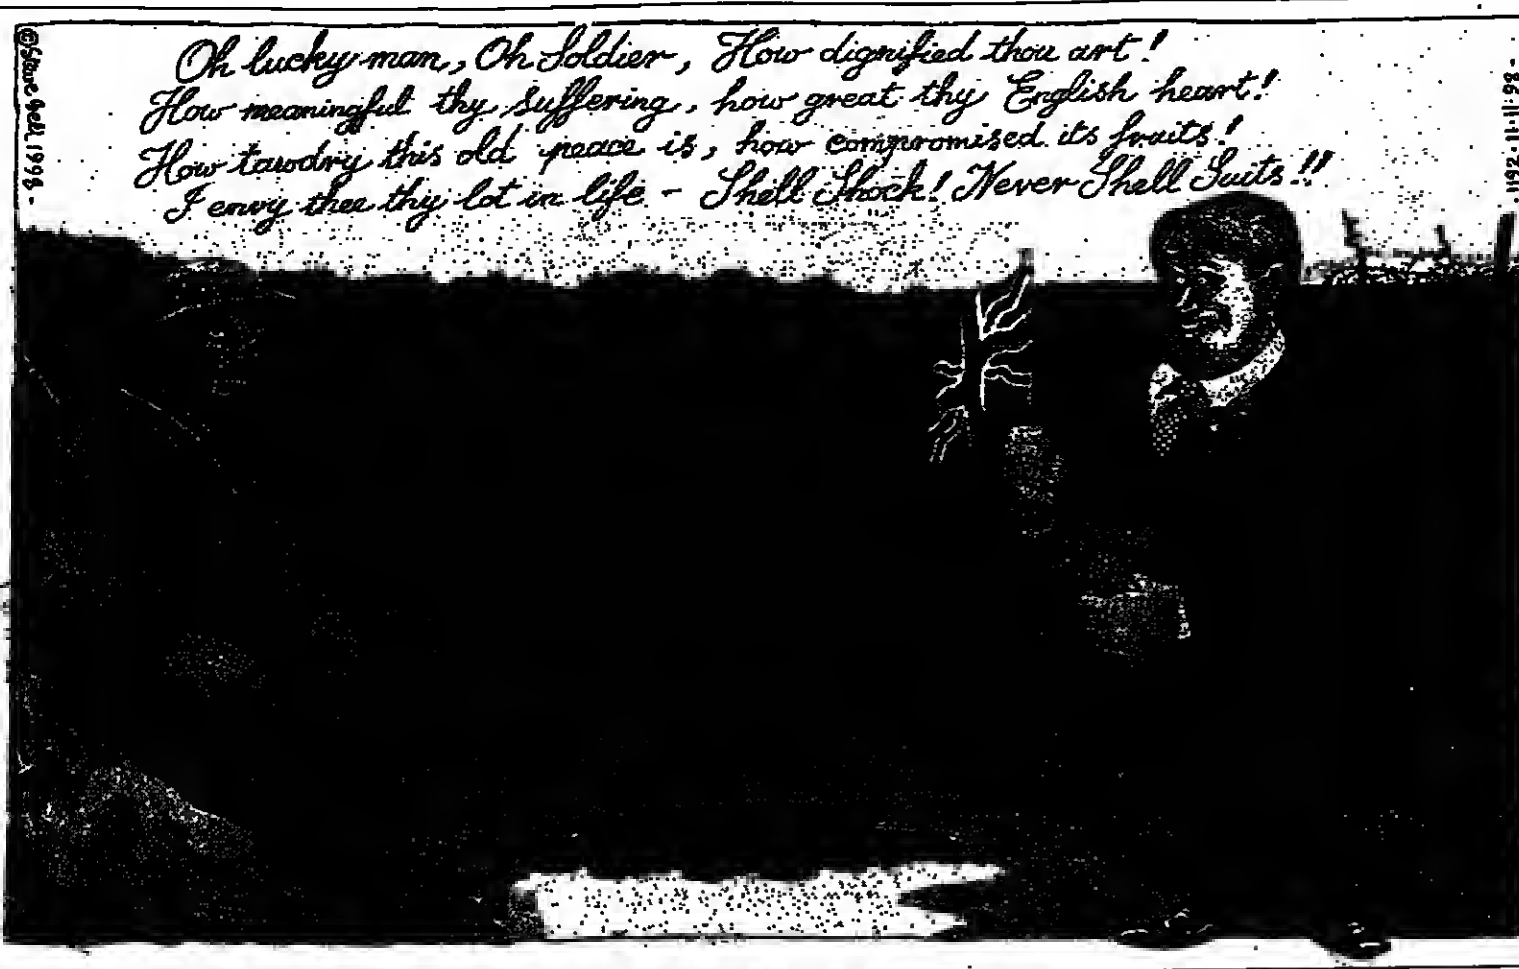 Oh lucky man, Oh Soldier, How dignified thou art!
How meaningful thy suffering, how great thy English heart!
How tawdry this old peace is, how compromised its fruits!
I envy thee thy lot in life - Shell Shock! Never Shell Suits!!
©Steve Bell 1998 -
1192·11·11·98-